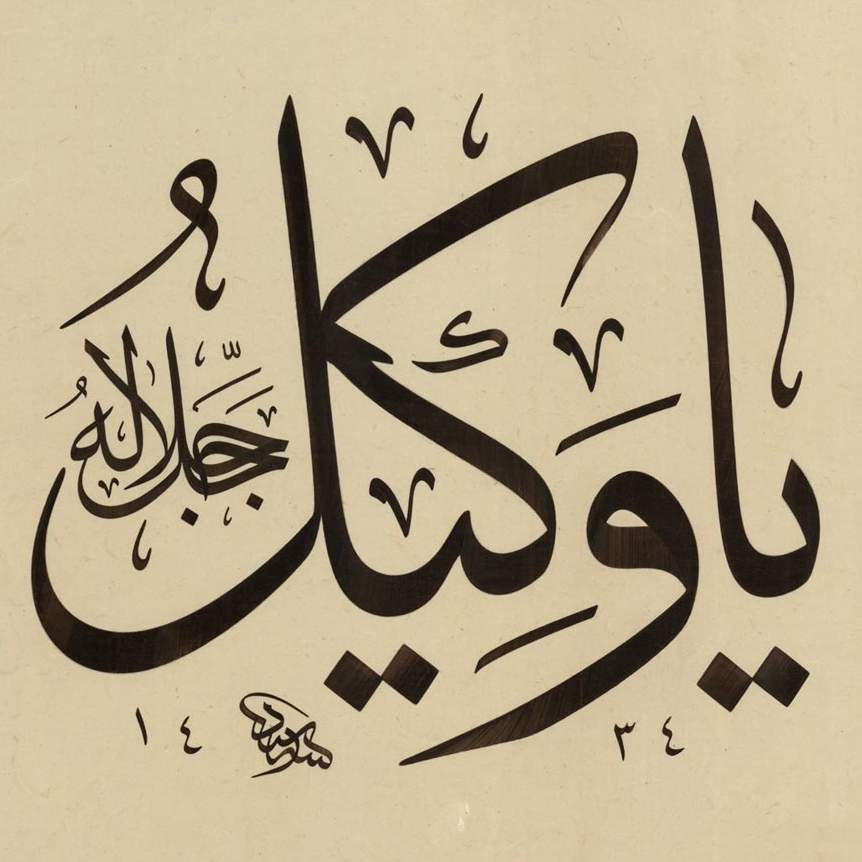 يا وَكِيلُ
جَلَّ جَلَالُهُ
١٤ ٣٤